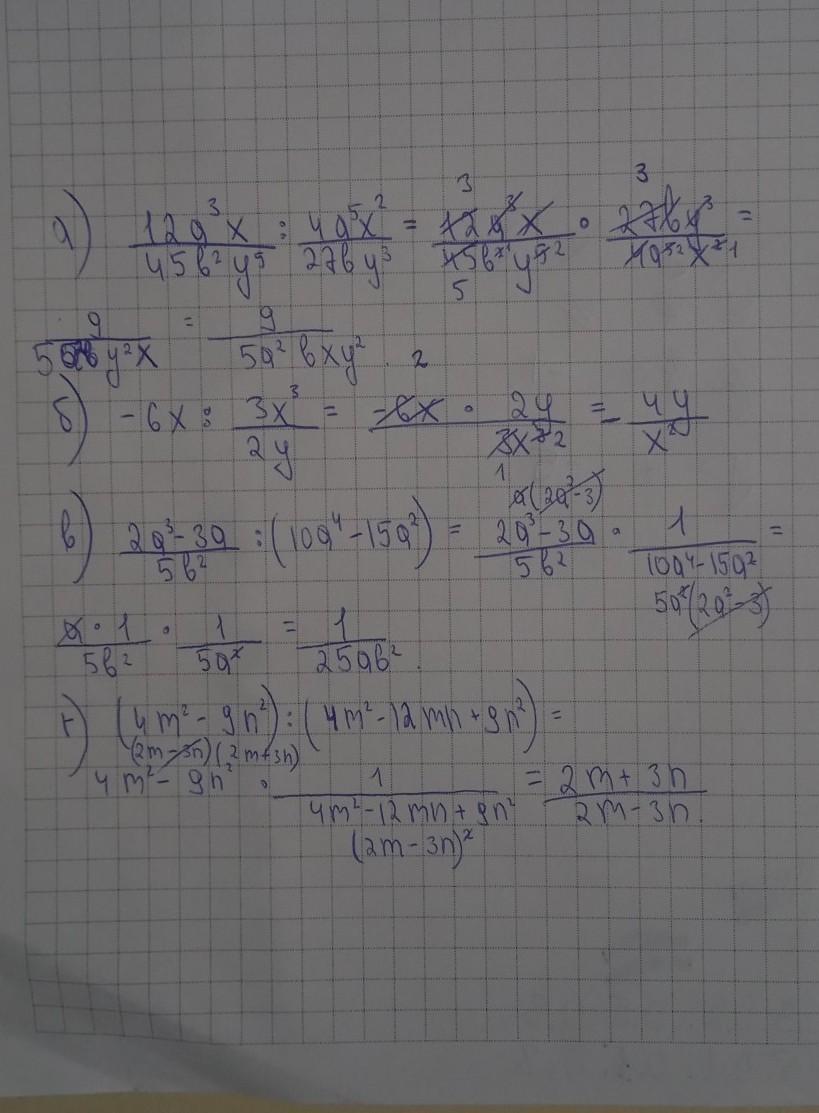 а) 12a³x / 45b²y⁵ : 4a⁵x² / 27by³ = 12a³x / 45b²y⁵ · 27by³ / 4a⁵x² =
3 3 5 2 2 1
9 / 5a²by²x = 9 / 5a²bxy².
б) -6x : 3x³ / 2y = -6x · 2y / 3x³ = - 4y / x²
2 1 2
в) 2a³-3a / 5b² : (10a⁴-15a²) = 2a³-3a / 5b² · 1 / 10a⁴-15a² =
a(2a²-3) 5a²(2a²-3)
a·1 / 5b² · 1 / 5a² = 1 / 25ab².
г) (4m²-9n²) : (4m²-12mn+9n²) =
(2m-3n)(2m+3n)
4m²-9n² · 1 / 4m²-12mn+9n² = 2m+3n / 2m-3n.
(2m-3n)²